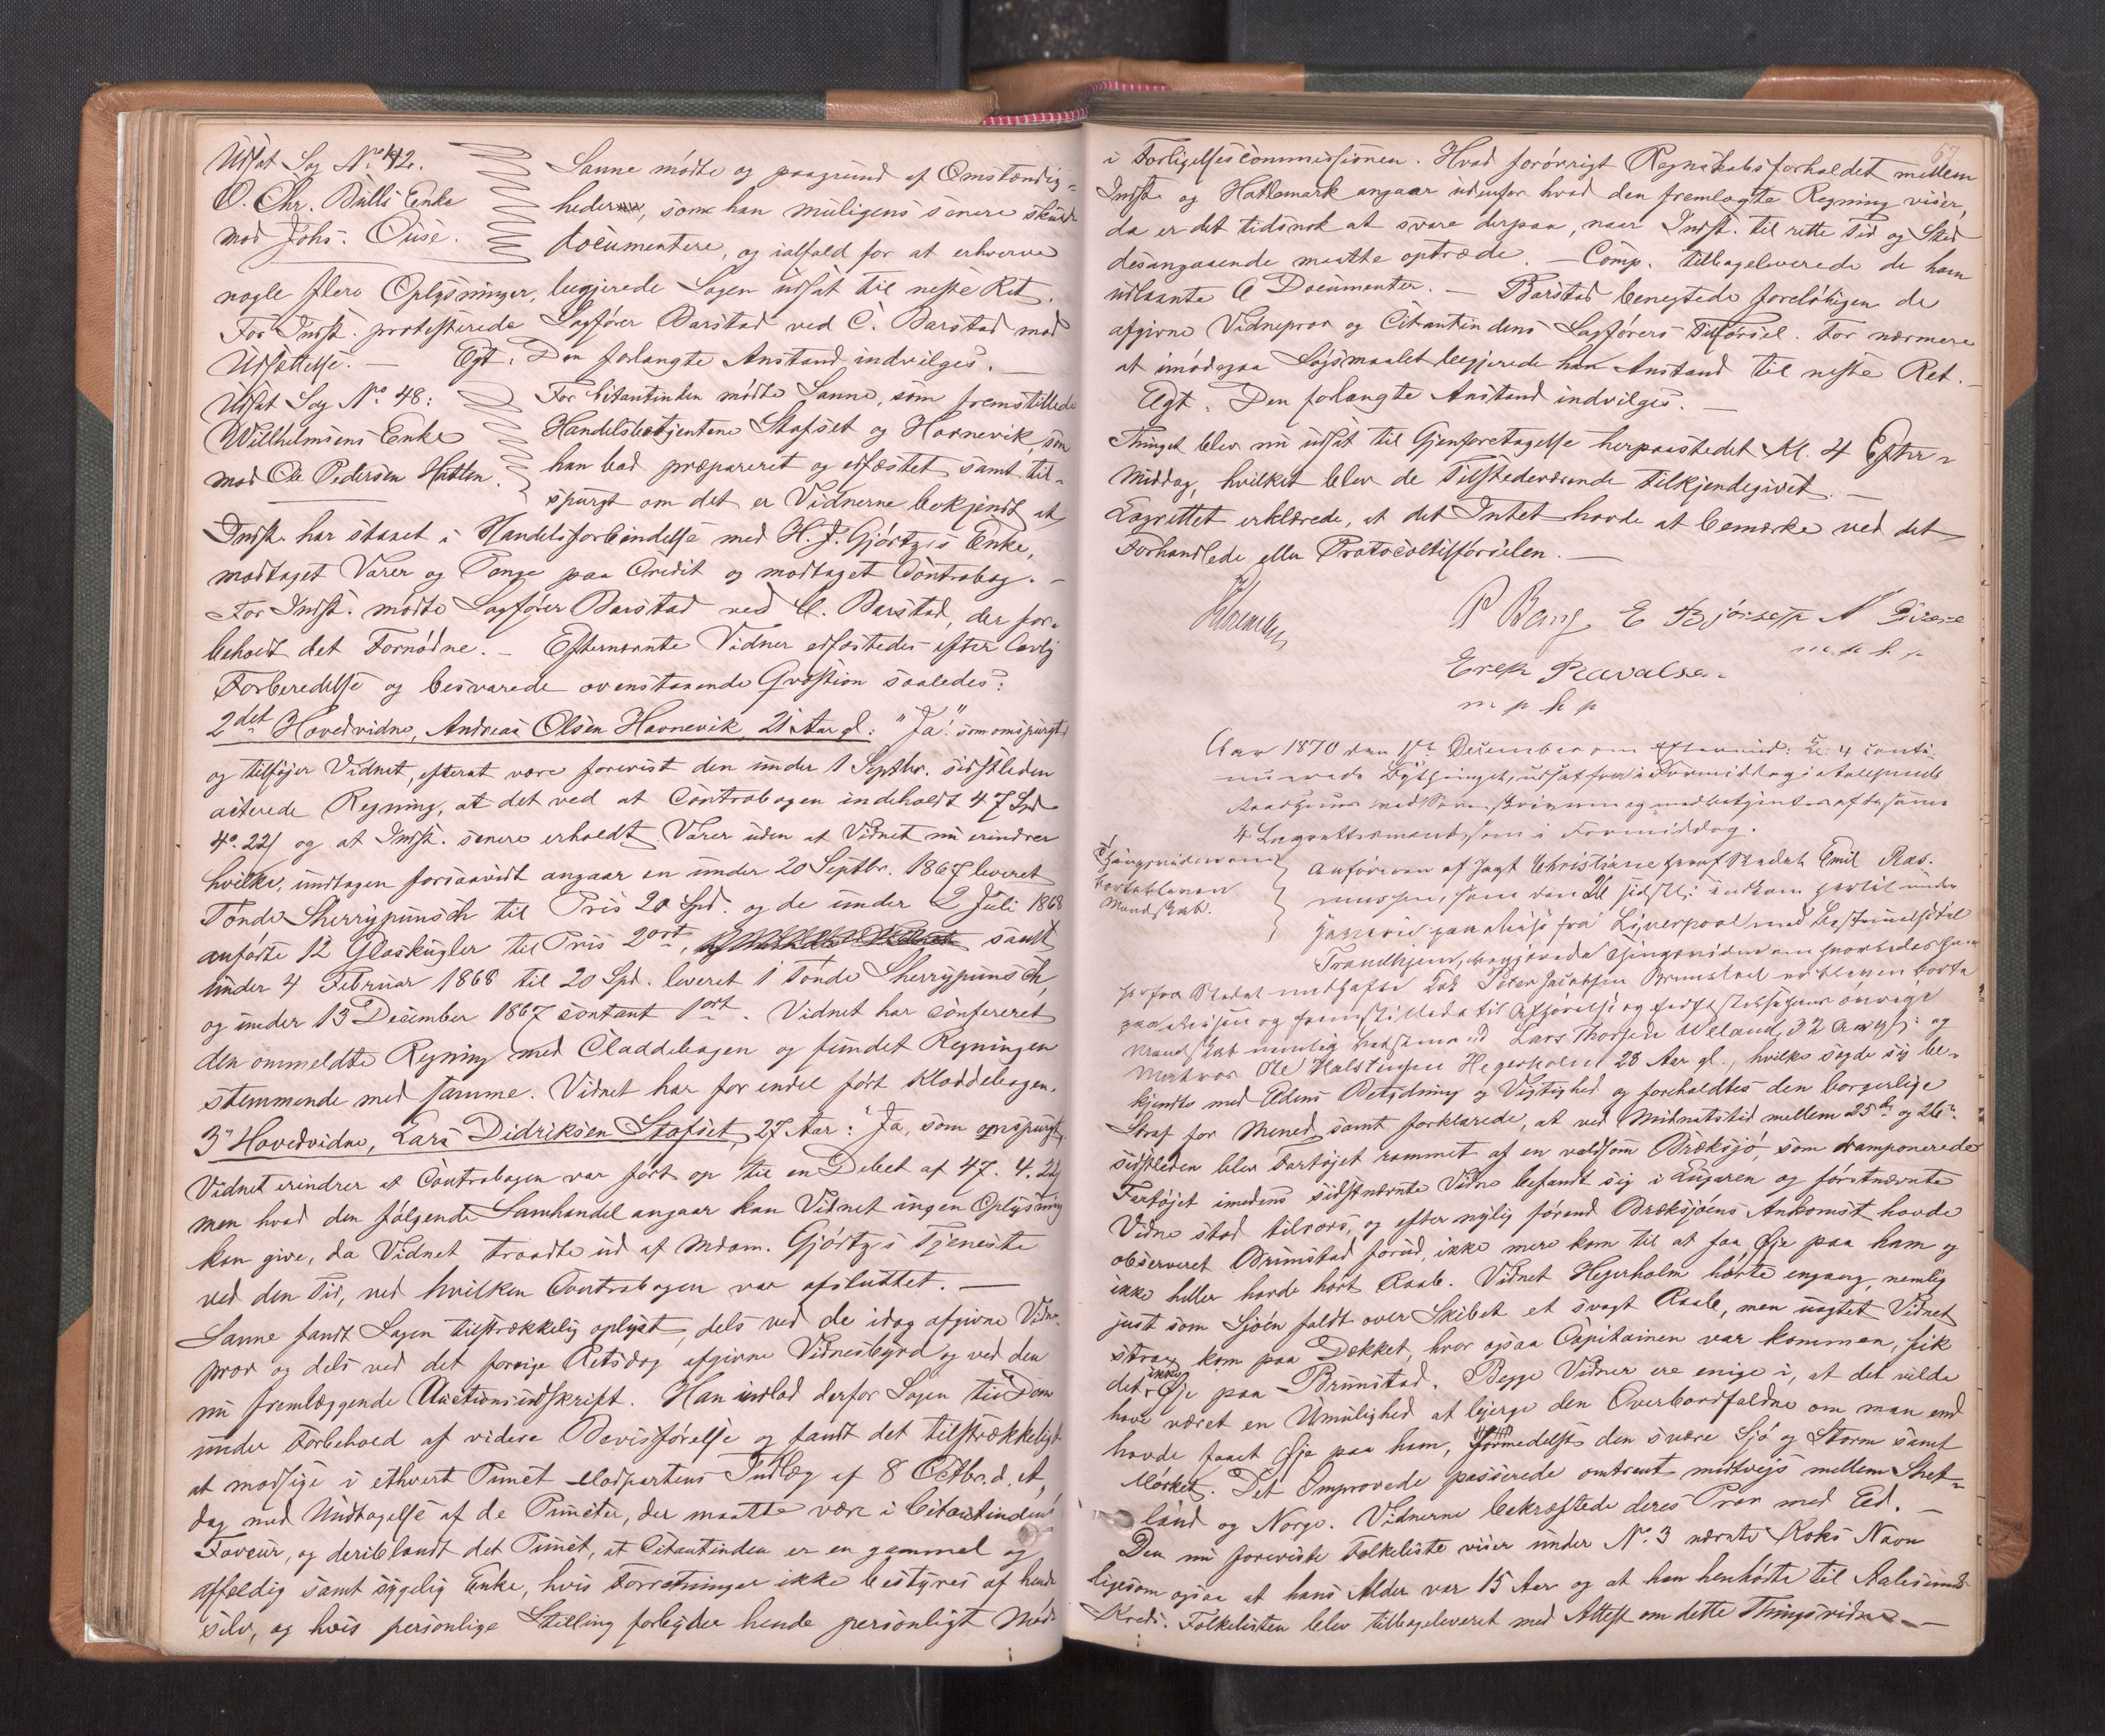 Udsat Sag No 42.
O. Chr. Bulls Enke
mod Johs. Ouse.
Sanne mødte og paagrund af Omstændig-
heder, som han muligens senere skulde
documentere, og ialfald for at erhverve
nogle flere Oplysninger, begjerede Sagen udsat til neste Ret.
For Indst. protesterede Sagfører Barstad ved C. Barstad mod
Udsættelse. — Egt: Den forlangte Anstand indvilges. —
Udsat Sag No 48:
Willhelmsens Enke
mod Ole Pedersen Hatlen.
For Citantinden mødte Sanne, som fremstillede
Handelsbetjentene Stafset og Havnevik, som
han bad præpareret og edfæstet samt til-
spurgt om det er Vidnerne bekjendt at
Indst. har staaet i Handelsforbindelse med H. J. Gjørtz's Enke,
modtaget Varer og Penge paa Credit og modtaget Contrabog. —
For Indst. mødte Sagfører Barstad ved C. Barstad, der for-
beholdt det Fornødne. — Efternævnte Vidner edfæstedes efter lovlig
Forberedelse og besvarede ovenstaaende Qvæstion saaledes:
2det Hovedvidne, Andreas Olsen Havnevik, 21 Aar gl: "Ja" som omspurgt
og tilføjer Vidnet, efterat være forevist den under 1 Septbr. sidstleden
acterede Regning, at det ved at Contrabogen indeholdt 47 Spd
4. 22 og at Indst. senere erholdt Varer uden at Vidnet nu erindrer
hvilke, undtagen forsaavidt angaar en under 20 Septbr. 1867 leveret
Tønde Sherrypunsch til Pris 20 Spd. og de under 2 Juli 1868
anførte 12 Glaskugler til Pris 2 ort, samt
under 4 Februar 1868 til 20 Spd. leveret 1 Tønde Sherrypunsch,
og under 13 December 1867 contant 1 ort. Vidnet har confereret
den ommeldte Regning med Claddebogen og fundet Regningen
stemmende med samme. Vidnet har for endel ført Kladdebogen.
3 Hovedvidne, Lars Didriksen Stafset, 27 Aar: Ja, som omspurgt,
Vidnet erindrer at Contrabogen var ført op til en Debet af 47. 4. 22
men hvad den følgende Samhandel angaar kan Vidnet ingen Oplysning
kan give, da Vidnet traadte ud af Mdam. Gjørtz's Tjeneste
ved den Tid, ved hvilken Contrabogen var afsluttet. —
Sanne fandt Sagen tilstrækkelig oplyst, dels ved de idag afgivne Vidne-
prov og dels ved det forrige Retsdag afgivne Vidnesbyrd og ved den
nu fremlæggende Auctionsudskrift. Han indlod derfor Sagen til Dom
under Forbehold af videre Bevisførelse og fandt det tilstrækkeligt
at modsige i ethvert Punct Modpartens Indlæg af 8 Octbr. d. A,
dog med Undtagelse af de Puncter, der maatte være i Citantindens
Faveur, og deriblandt det Punct, at Citantinden er en gammel og
affeldig samt sygelig Enke, hvis Forretninger ikke bestyres af hende
selv, og hvis personlige Stilling forbyder hende personligt Møde
i Forligelsescommissionen. Hvad forøvrigt Regnskabsforholdet mellem
Indst. og Hatlemark angaar udenfor hvad den fremlagte Regning viser,
da er det tidsnok at svare derpaa, naar Indst. til rette Tid og Sted
desangaaende maatte optræde. — Comp. tilbageleverede de ham
udlaante 6 Documenter. — Barstad benegtede foreløbigen de
afgivne Vidneprov og Citantindens Sagførers Tilførsel. For nærmere
at imødegaa Søgsmaalet begjerede han Anstand til neste Ret. —
Egt: Den forlangte Anstand indvilges. —
Thinget blev nu udsat til Gjenforetagelse herpaastedet Kl. 4 Efter-
middag, hvilket blev de Tilstedeværende tilkjendegivet. —
Lagrettet erklærede, at det Intet havde at bemærke ved det
Forhandlede eller Protocoltilførselen. —
P Bang E Bjørseth
m p h p
m p h p
Aar 1870 den 1ste December om Eftermid: Kl: 4 conti-
nuerede Bythinget, udsat fra i Formiddag i Aalesunds
Raadhuus med Sorenskriveren og med betjent af de samme
4 Lagrettesmænd, som i Formiddag.
Thingsvidne om
bortblevne
Mandskab.
Anføreren af Jagt Christiane Emil Ras-
mussen, som den 26 sidstl: indkom hertil under
Havarie paa Reise fra Liverpool med Bestemmelse til
Trondhjem, begjærede Thingsvidne om hvorledes
fra Stedet Kok Peter Jacobsen Brunstad er bleven borte
paa Reisen og fremstillede til Afhørelse øvrige
Mandskab nemlig Bedstemand Lars Thorsen Weland, 32 Aar gl: og
Matros Ole Halstensen Hegerholm 23 Aar gl., hvilke sagde sig be-
kjendte med Edens Betydning og Vigtighed og foreholdtes den borgerlige
Straf for Mened samt forklarede, at ved Midnatstid mellem 25de og 26de
sidstleden blev Fartøjet rammet af en voldsom Bræksjø, som ramponerede
Fartøjet imedens sidstnævnte Vidne befandt sig i Lugaren og førstnævnte
Vidne stod tilrors, og efter nylig førend Bræksjøens Ankomst havde
observeret Brunstad forud, ikke mere kom til at faa Øje paa ham og
ikke heller havde hørt Raab. Vidnet Hegerholm hørte engang, nemlig
just som Sjøen faldt over Skibet et svagt Raab, men uagtet Vidnet
strax kom paa Dækket, hvor ogsaa Capitainen var kommen, fik
det ikke Øje paa Brunstad. Begge Vidner ere enige i, at det vilde
have været en Umulighed at bjerge den Overbordfaldne om man end
havde faaet Øje paa ham, formedelst den svære Sjø og Storm samt
Mørket. Det Omprovede passerede omtrent midtvejs mellem Shet-
land og Norge. Vidnerne bekræftede deres Prov med Ed. —
Den nu foreviste Folkeliste viser under No. 3 nævnte Koks Navn
ligesom ogsaa at hans Alder var 15 Aar og at han henhørte til Aalesunds
Kreds. Folkelisten blev tilbageleveret med Attest om dette Thingsvidne —